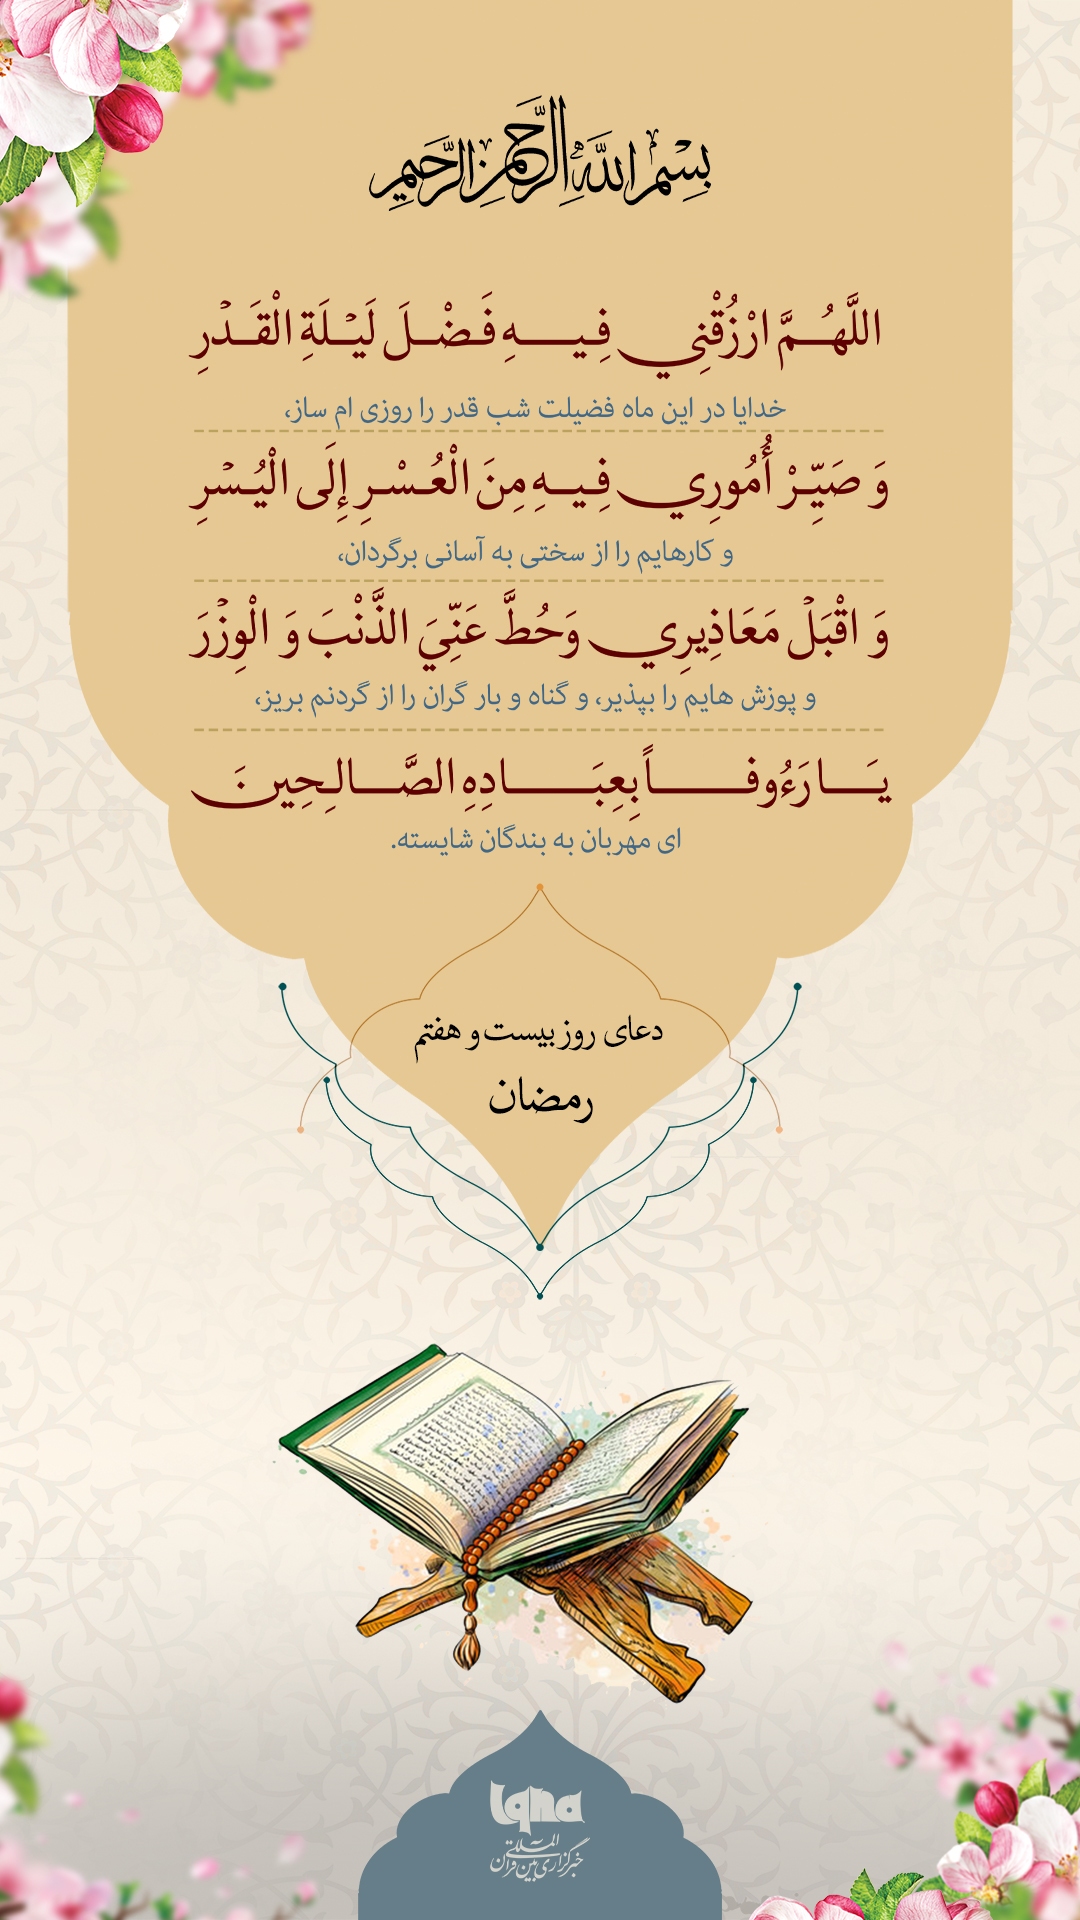 بِسْمِ اللَّهِ الرَّحْمَنِ الرَّحِيمِ
اللَّهُمَّ ارْزُقْنِي فِيهِ فَضْلَ لَيْلَةِ الْقَدْرِ
خدایا در این ماه فضیلت شب قدر را روزی ام ساز،
وَ صَيِّرْ أُمُورِي فِيهِ مِنَ الْعُسْرِ إِلَى الْيُسْرِ
و کارهایم را از سختی به آسانی برگردان،
وَ اقْبَلْ مَعَاذِيرِي وَحُطَّ عَنِّيَ الذَّنْبَ وَ الْوِزْرَ
و پوزش هایم را بپذیر، و گناه و بار گران را از گردنم بریز،
يَا رَءُوفاً بِعِبَادِهِ الصَّالِحِينَ
ای مهربان به بندگان شایسته.
دعای روز بیست و هفتم
رمضان
Iqna
خبرگزاری بین المللی قرآن